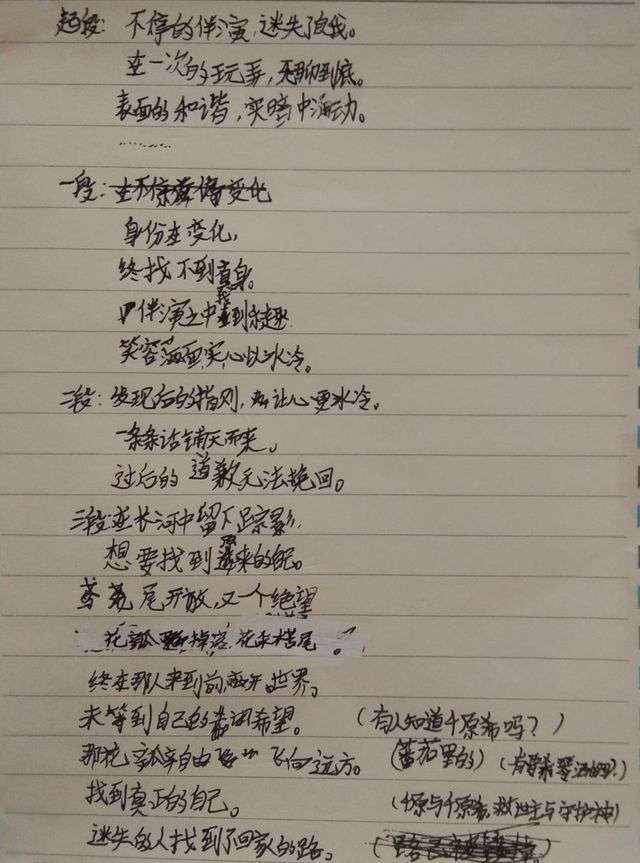 起段：不停的伴演，迷失了自我。
在一次的玩弄，无聊到底。
表面的和谐，实暗中涌动。
……
一段：
身份在变化，
终找不到真身。
伴演之中找到乐趣
笑容满面实心以冰冷。
二段：发现后的指则，让心更冰冷。
一条条话铺天而来。
过后的道歉无法挽回。
三段：在长河中留下踪影
想要找到原来的自己。
鸢尾开放，又一个绝望
花瓢掉落，花未枯尾。
终在那人来到前离开世界。
未等到自己的希望。（有人知道千原希吗？）
那花瓢自由飞向远方。（蕃茄里的）
找到真正的自己。（千原与千原希，救世主与守护神）
迷失的人找到了回家的路。